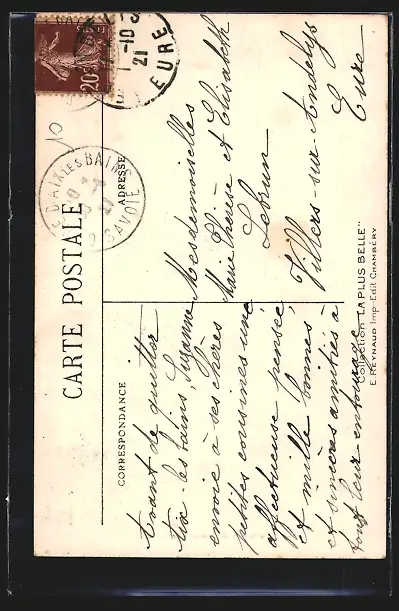 CARTE POSTALE
CORRESPONDANCE
ADRESSE
Avant de quitter
Aix-les-bains, Suzanne
envoie à ses chères
petites cousines une
affectueuse pensée
et mille bonnes
et sincères amitiés à
tout leur entourage
Mesdemoiselles
Marie Thérèse et Elisabeth
Lebrun
Villers-sur-Andelys
Eure
Collection "LA PLUS BELLE"
E. REYNAUD Imp-Edit CHAMBÉRY
20c
AIX LES BAINS
SAVOIE
21
EURE